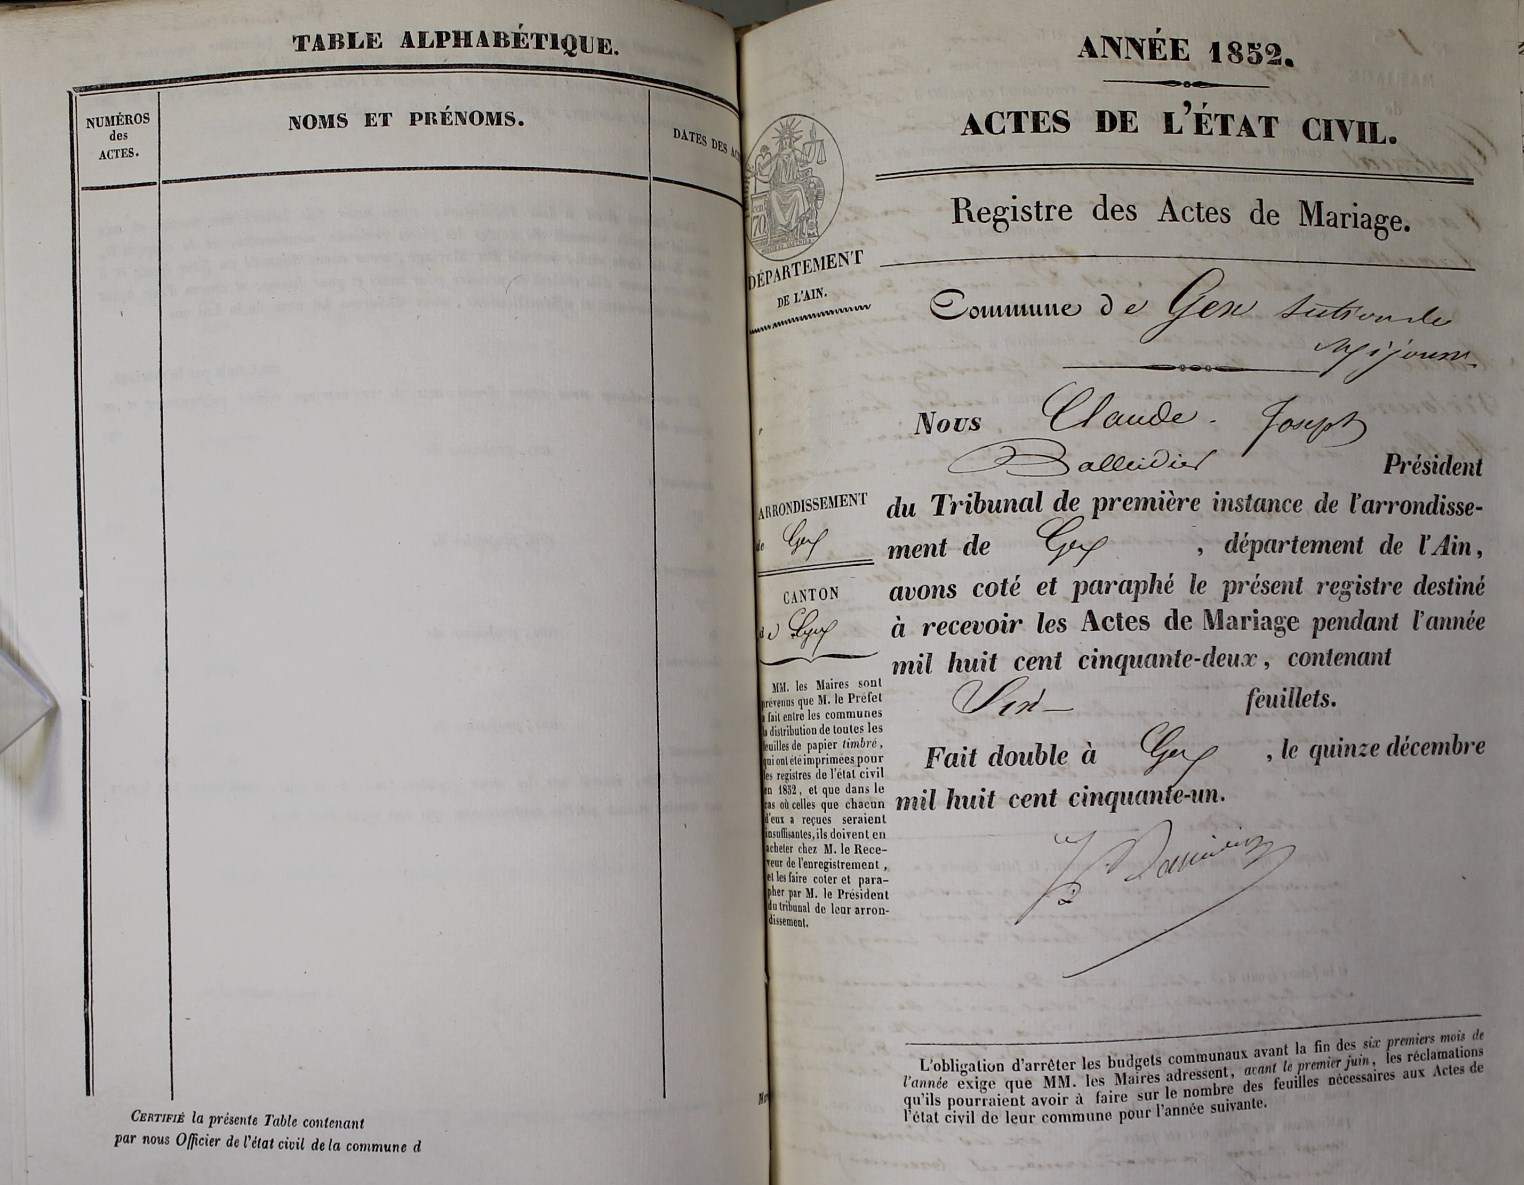 TABLE ALPHABÉTIQUE.
NUMÉROS
des
ACTES.
NOMS ET PRÉNOMS.
DATES DES AC
CERTIFIÉ la présente Table contenant
par nous Officier de l'état civil de la commune d
ANNÉE 1852.
ACTES DE L'ÉTAT CIVIL.
Registre des Actes de Mariage.
DÉPARTEMENT
DE L'AIN.
Commune de Gex section de
Mijoux
Nous Claude Joseph
Balleidier Président
du Tribunal de première instance de l'arrondisse-
ment de Gex, département de l'Ain,
avons coté et paraphé le présent registre destiné
à recevoir les Actes de Mariage pendant l'année
mil huit cent cinquante-deux, contenant
Six feuillets.
Fait double à Gex, le quinze décembre
mil huit cent cinquante-un.
ARRONDISSEMENT
de Gex
CANTON
de Gex
MM. les Maires sont
prévenus que M. le Préfet
a fait entre les communes
la distribution de toutes les
feuilles de papier timbré,
qui ont été imprimées pour
les registres de l'état civil
en 1852, et que dans le
cas où celles que chacun
d'eux a reçues seraient
insuffisantes, ils doivent en
acheter chez M. le Rece-
veur de l'enregistrement,
et les faire coter et para-
pher par M. le Président
du tribunal de leur arron-
dissement.
L'obligation d'arrêter les budgets communaux avant la fin des six premiers mois de
l'année exige que MM. les Maires adressent, avant le premier juin, les réclamations
qu'ils pourraient avoir à faire sur le nombre des feuilles nécessaires aux Actes de
l'état civil de leur commune pour l'année suivante.